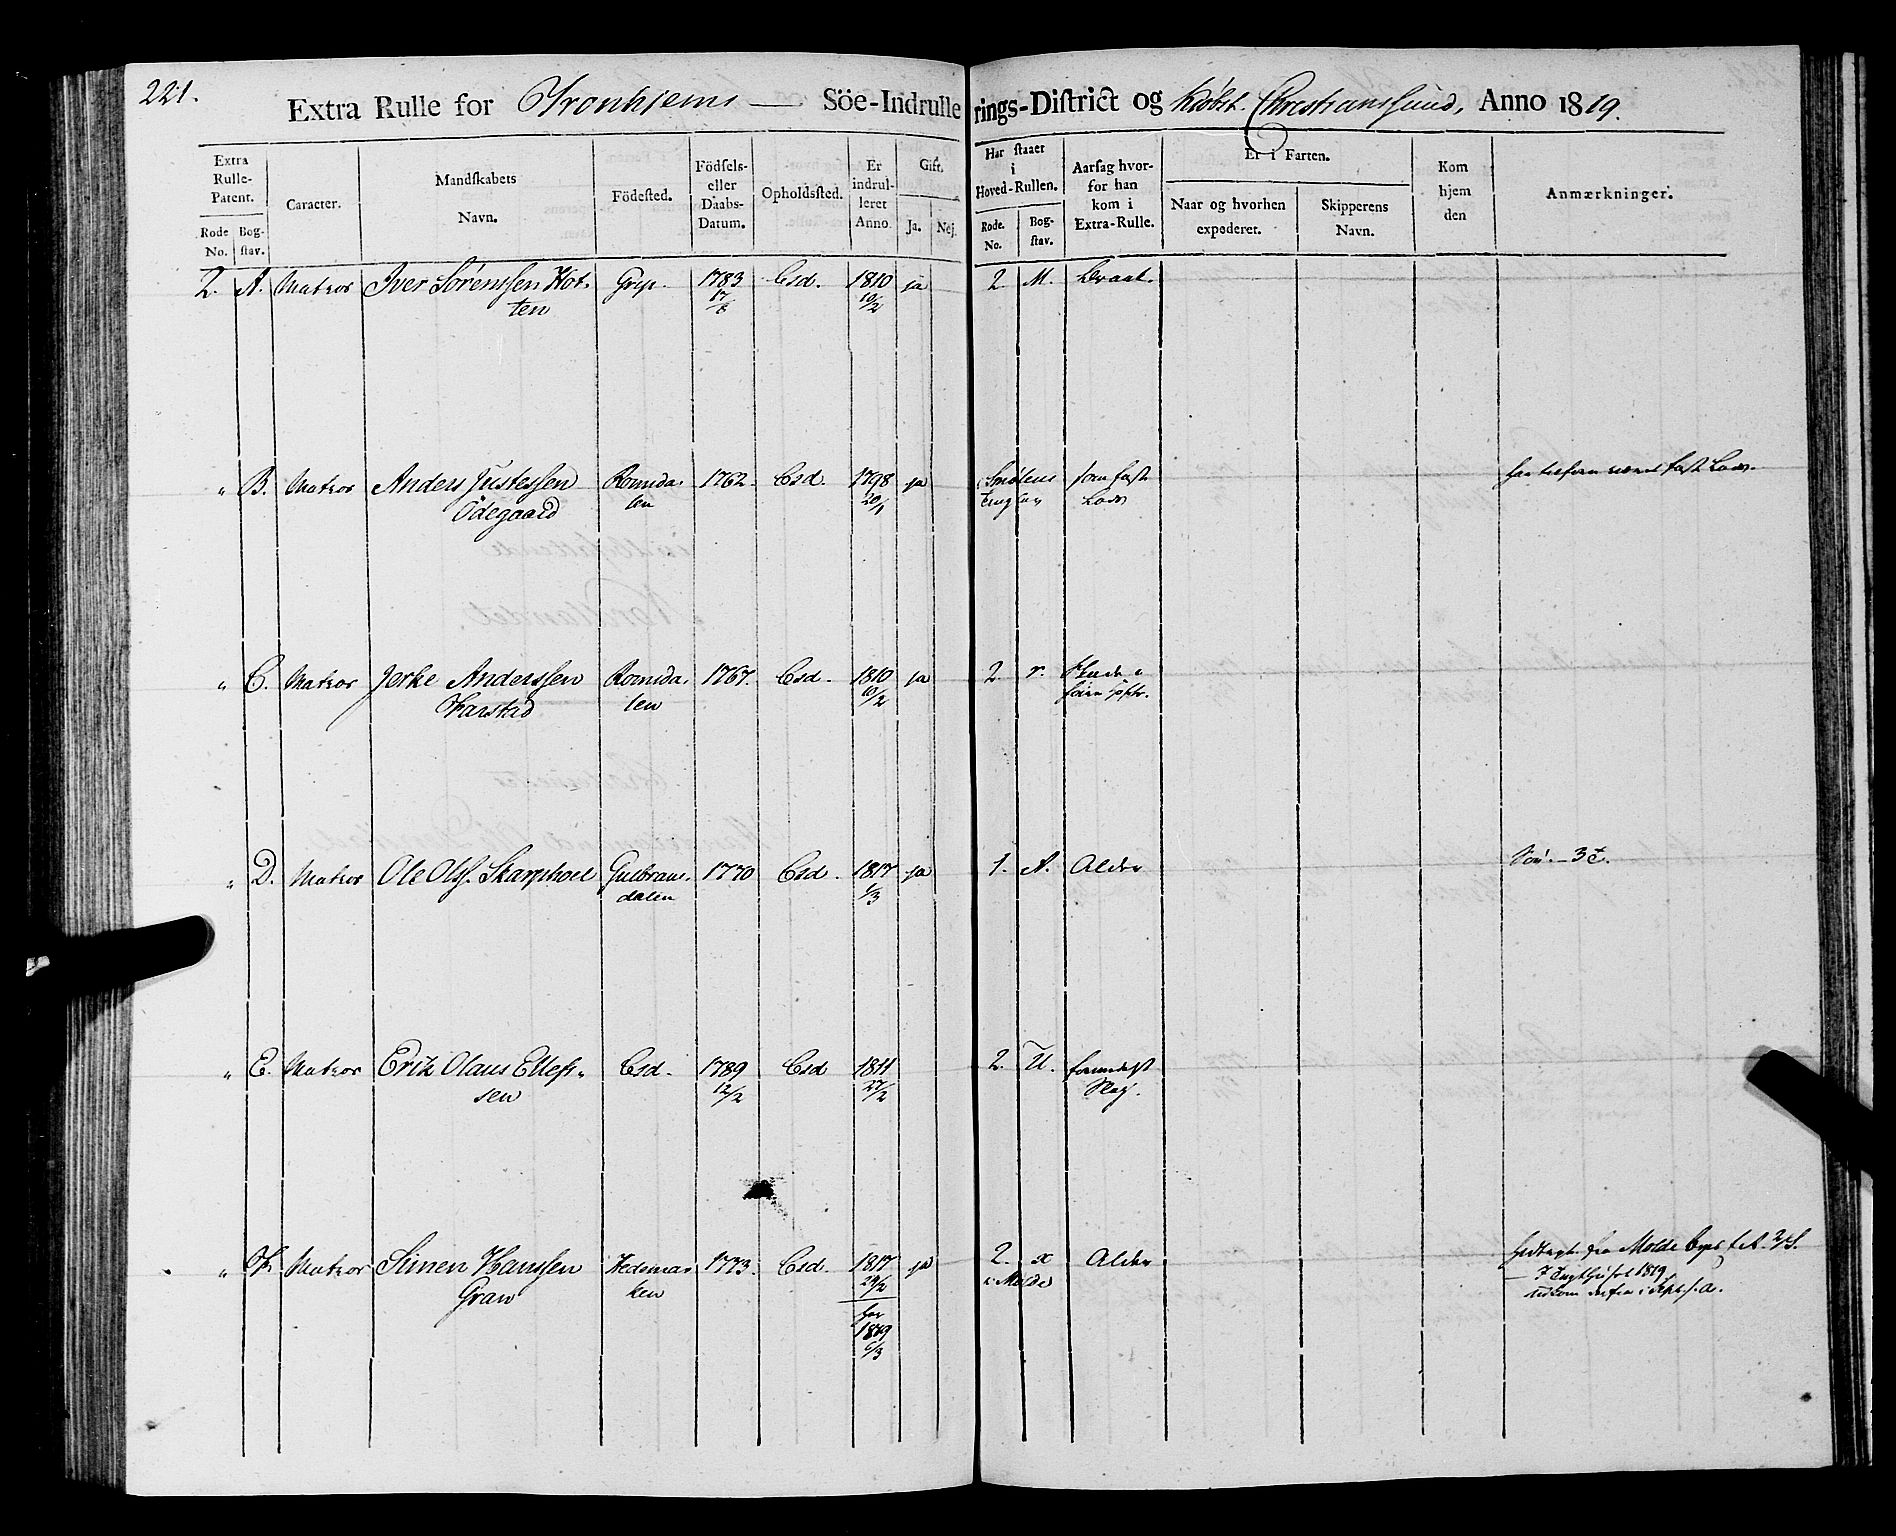 221.
Extra Rulle for Tronhjems — Söe-Indrullerings-District og Kiöbst. Christianssund, Anno 1819.
Extra Rulle-Patent. Rode No. Bogstav.
Caracter.
Mandskabets Navn.
Födested.
Födsels- eller Daabs-Datum.
Opholdsted.
Er indrulleret Anno.
Gift. Ja. Nej.
Har staaet i Hoved-Rullen. Rode. No. Bogstav.
Aarsag hvorfor han kom i Extra-Rulle.
Er i Farten. Naar og hvorhen expederet. Skipperens Navn.
Kom hjem den
Anmærkninger.
2. A. Matros Iver Sörenssen Hot- Grip. 1783 Csd. 1810 ja 2. M.
ten 17/8 10/2
" B. Matros Anders Justessen Romsda- 1762 Csd. 1798 ja Smölens som fast
Ödegaard len 20/1 Lods
" C. Matros Jerke Anderssen Romsda- 1767. Csd. 1810 ja 2. r.
Harstad len 10/2
" D. Matros Ole Ols. Skarphoel Gulbrans- 1770 Csd. 1817 ja 1. A. Alder
dalen 1/3
" E. Matros Erik Olaus Ellefs- Csd. 1789 Csd 1811 2. U.
sen 12/2 27/2
" F. Matros Simen Hanssen Hedemar- 1773. Csd. 1817 ja 2. x Alder
Gran ken 29/2 i Molde
har
1819
6/3
3 t.
fra Molde Byes
1819